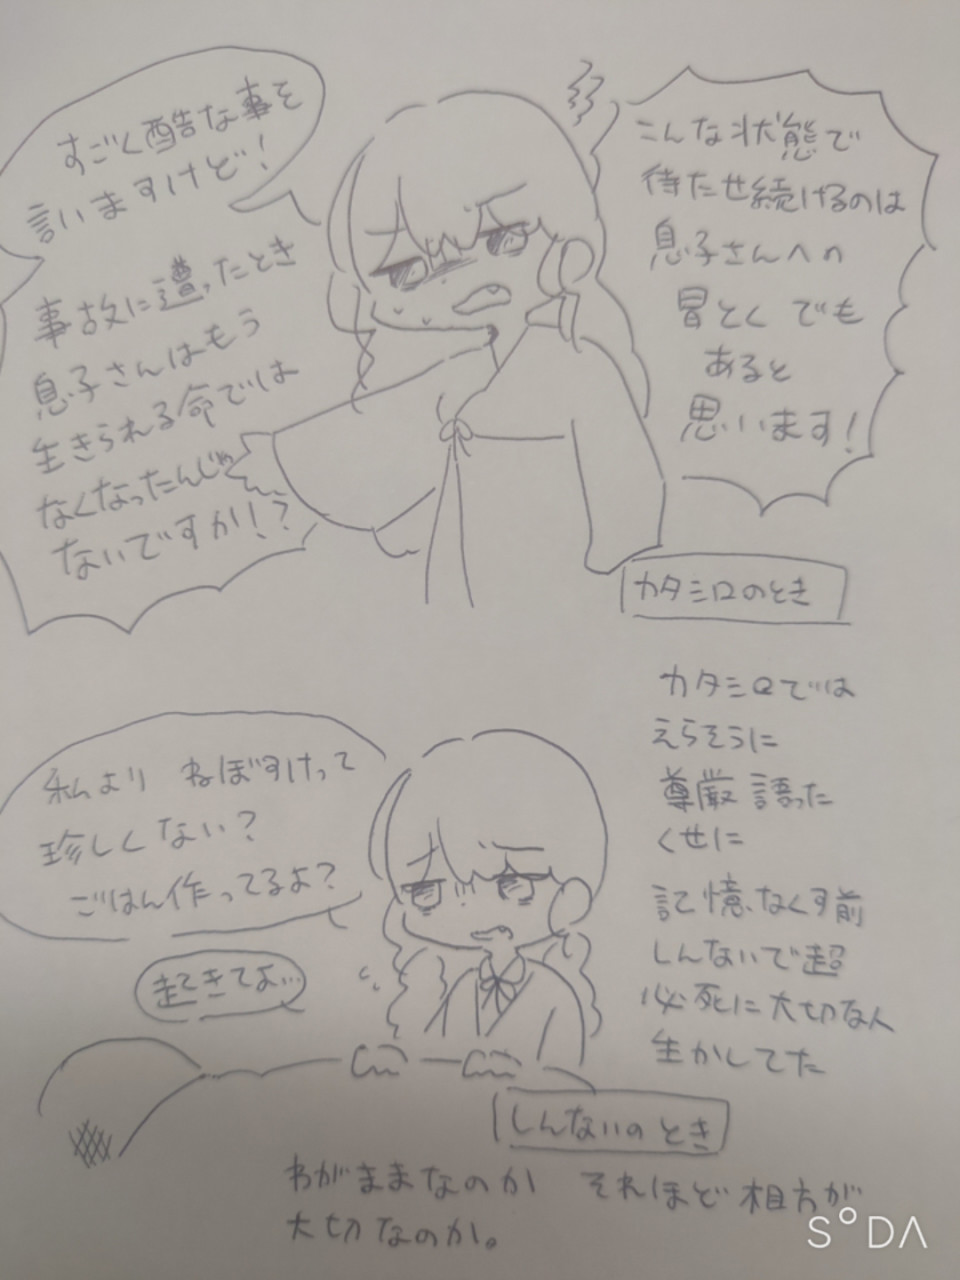 すごく酷な事を
言いますけど！
事故に遭ったとき
息子さんはもう
生きられる命では
なくなったんじゃ
ないですか！？
こんな状態で
待たせ続けるのは
息子さんへの
冒とくでも
あると
思います！
カタシロのとき
カタシロでは
えらそうに
尊厳語った
くせに
記憶なくす前
しんないで超
必死に大切な人
生かしてた
私より ねぼすけって
珍しくない？
ごはん作ってるよ？
起きてよ…
しんないのとき
わがままなのか それほど相方が
大切なのか。
SODA